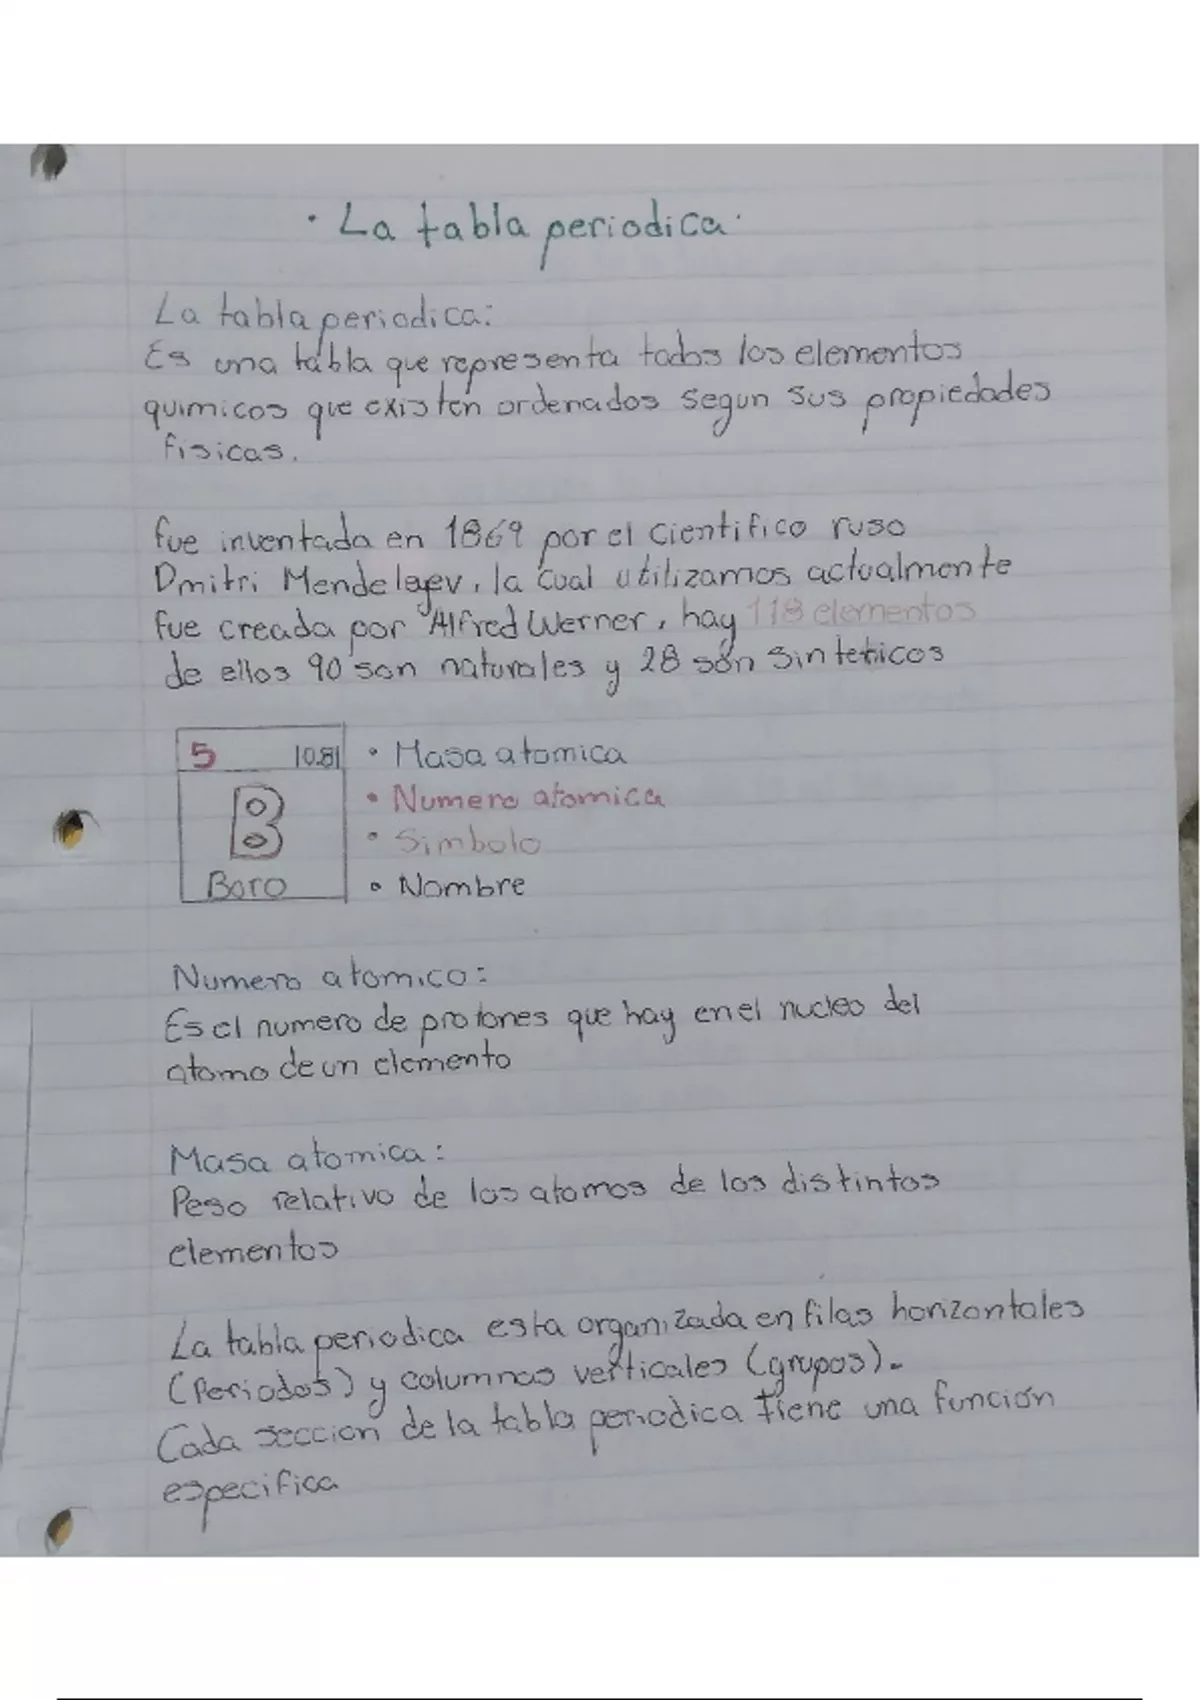 · La tabla periodica ·
La tabla periodica:
Es una tabla que representa todos los elementos
quimicos que existen ordenados segun sus propiedades
fisicas.
fue inventada en 1869 por el cientifico ruso
Dmitri Mendeleyev, la cual utilizamos actualmente
fue creada por Alfred Werner, hay 118 elementos
de ellos 90 son naturales y 28 son sinteticos
5 10.81
B
Boro
• Masa atomica
• Numero atomica
• Simbolo
• Nombre
Numero atomico:
Es el numero de protones que hay en el nucleo del
atomo de un elemento
Masa atomica:
Peso relativo de los atomos de los distintos
elementos
La tabla periodica esta organizada en filas horizontales
(Periodos) y columnas verticales (grupos).
Cada seccion de la tabla periodica tiene una función
especifica